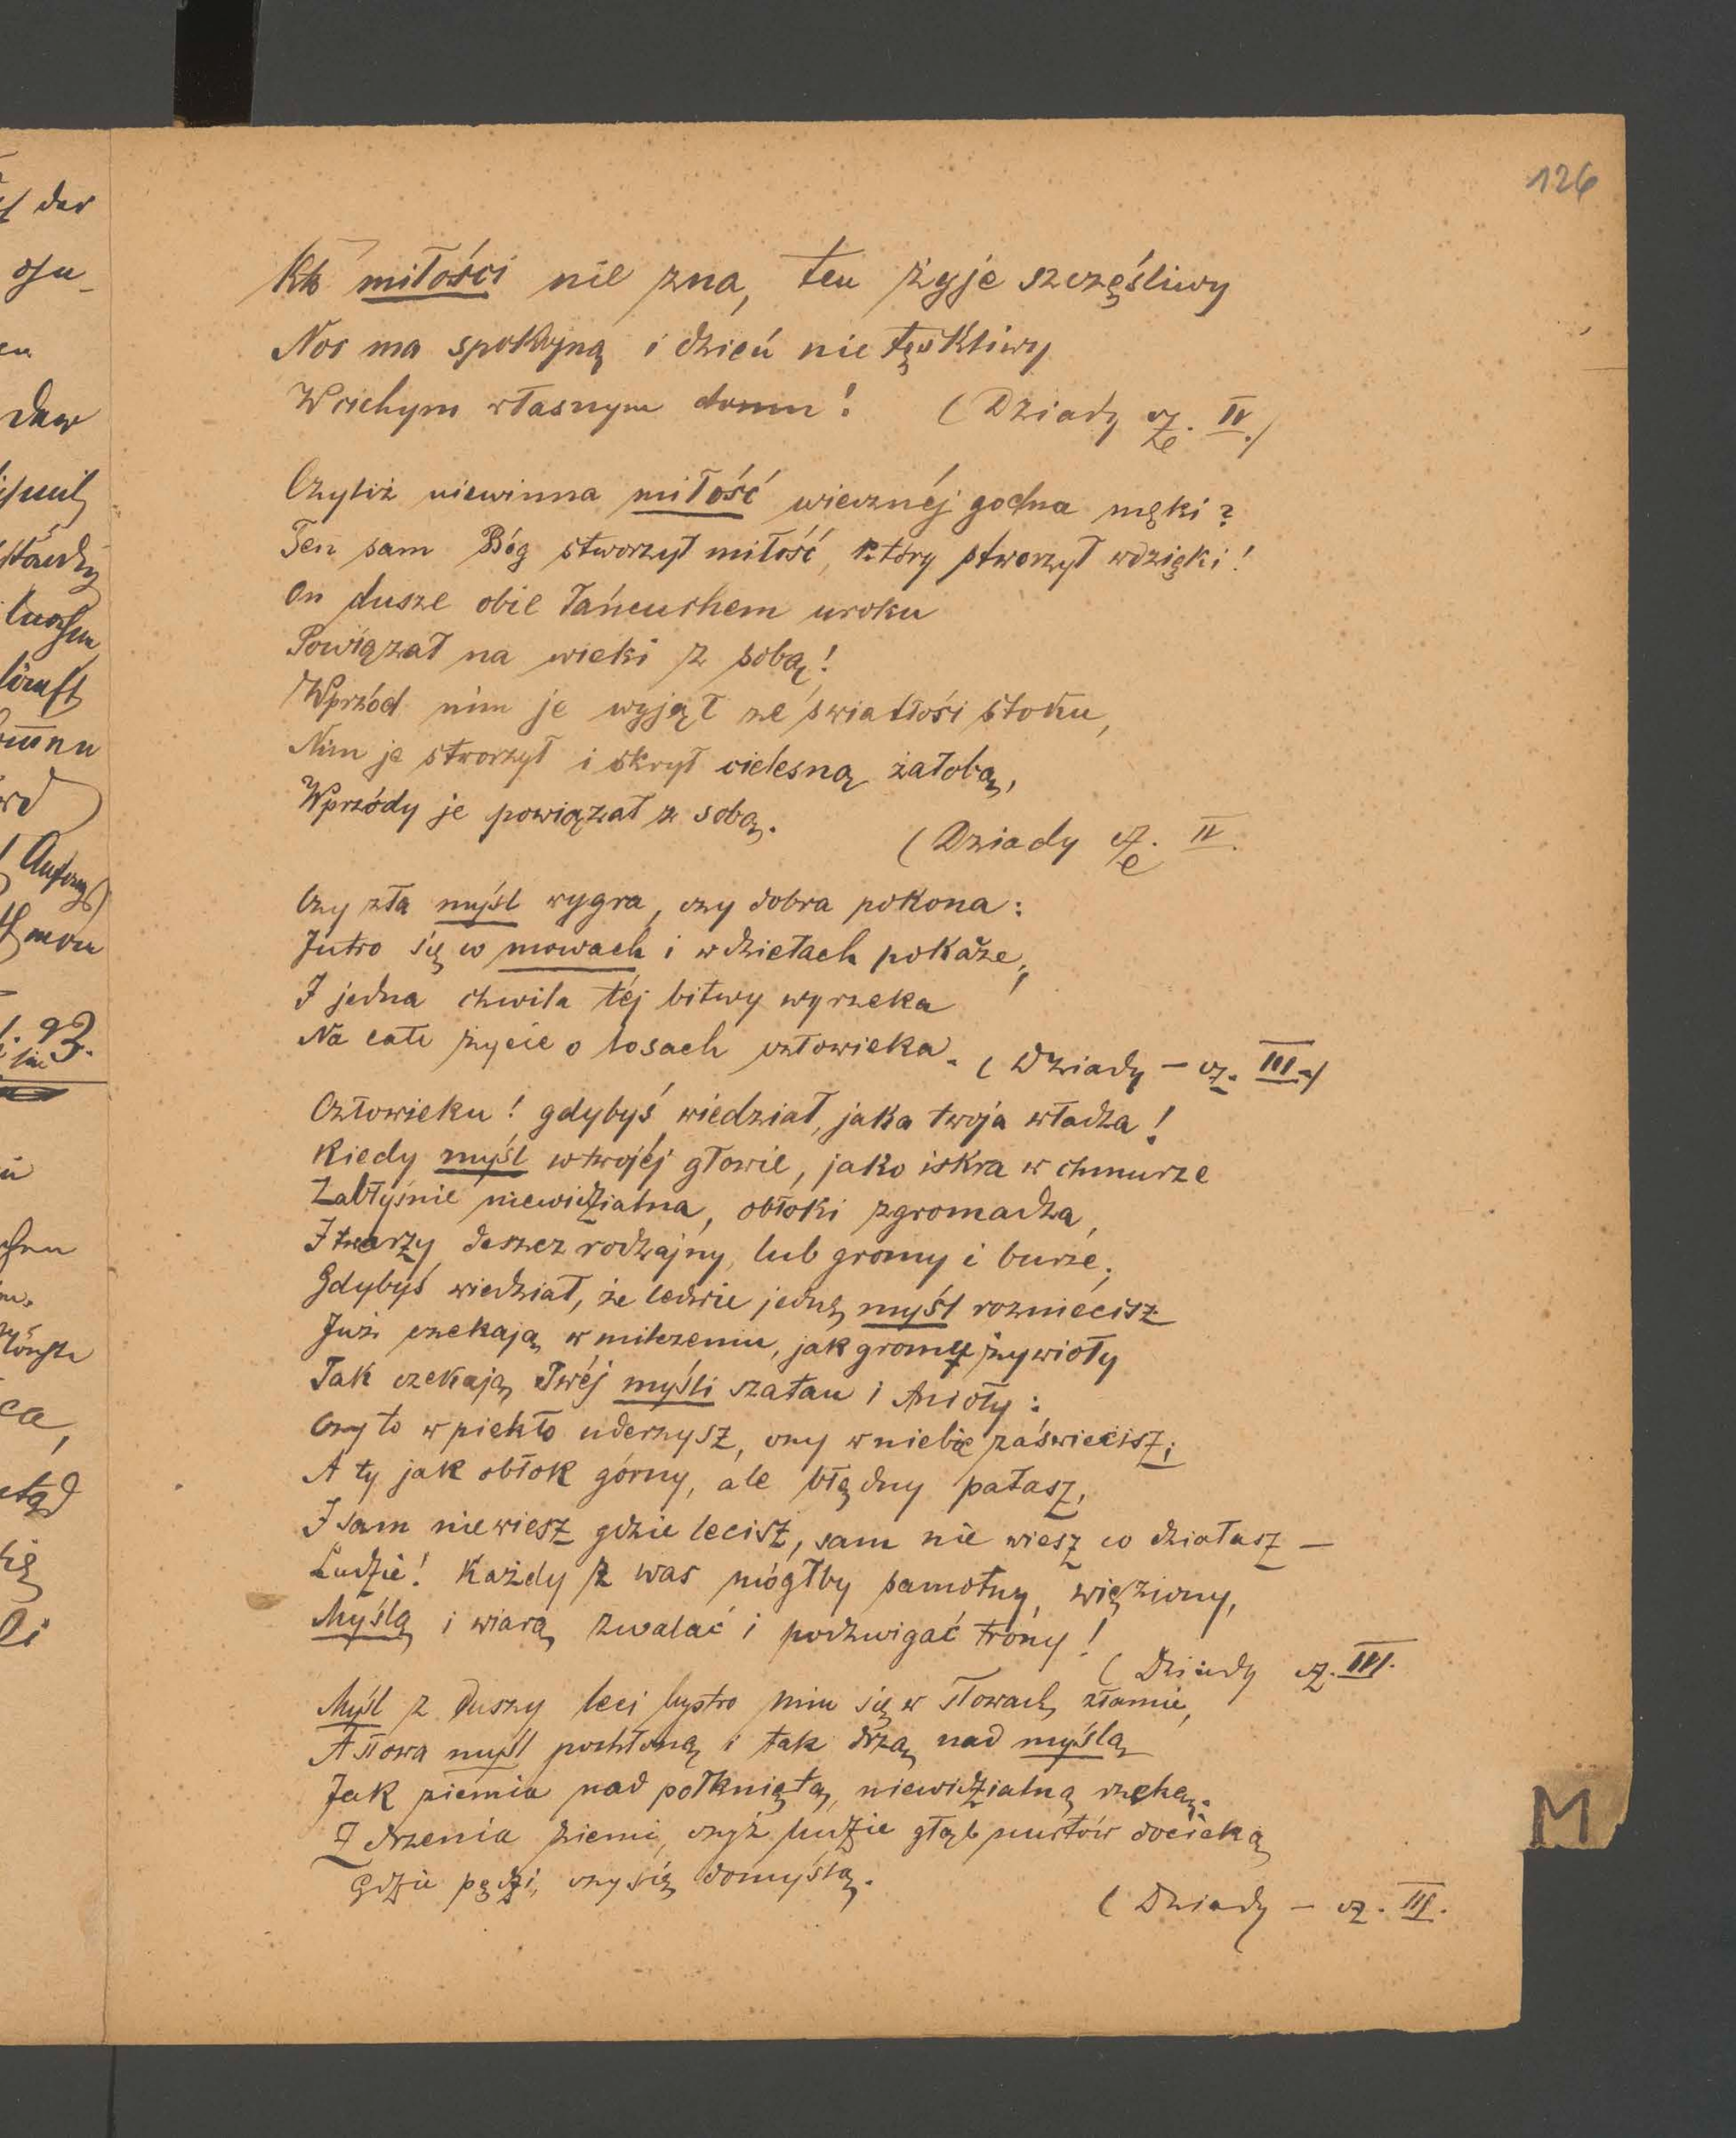 126
Kto miłości nie zna, ten żyje szczęśliwy
Noc ma spokojną i dzień nie tęskliwy
W cichym własnym domu! (Dziady cz. IV.)
Czyliż niewinna miłość wiecznéj godna męki?
Ten sam Bóg stworzył miłość, który stworzył wdzięki!
On dusze obie łańcuchem uroku
Powiązał na wieki z sobą!
Wprzód nim je wyjął ze światłości stoku,
Nim je stworzył i skrył cielesną żałobą,
Wprzódy je powiązał z sobą.
(Dziady cz. IV.
Czy zła myśl wygra, czy dobra pokona:
Jutro się w mowach i w dziełach pokaże;
I jedna chwila téj bitwy wyrzeka
Na całe życie o losach człowieka. (Dziady – cz. III.)
Człowieku! gdybyś wiedział, jaka twoja władza!
Kiedy myśl w twojéj głowie, jako iskra w chmurze
Zabłyśnie niewidzialna, obłoki zgromadza,
I tworzy deszcz rodzajny, lub gromy i burze;
Gdybyś wiedział, że ledwie jedną myśl rozniecisz
Już czekają w milczeniu, jak gromy żywioły
Tak czekają Twéj myśli szatan i Anioły:
Czy to w piekło uderzysz, czy w niebie zaświecisz;
A ty jak obłok górny, ale błędny pałasz,
I sam nie wiesz gdzie lecisz, sam nie wiesz co działasz –
Ludzie! Każdy z was mógłby samotny, więziony,
Myślą i wiarą zwalać i podzwigać trony!
(Dziady cz. III.
Myśl z duszy leci bystro nim się w słowach złamie,
A słowa myśl pochłoną i tak drżą nad myślą
Jak ziemia nad połkniętą, niewidzialną rzeką.
Z drżenia ziemi, czyż ludzie głąb nurtów docieką
Gdzie pędzi, czy się domyślą.
(Dziady – cz. III.
M